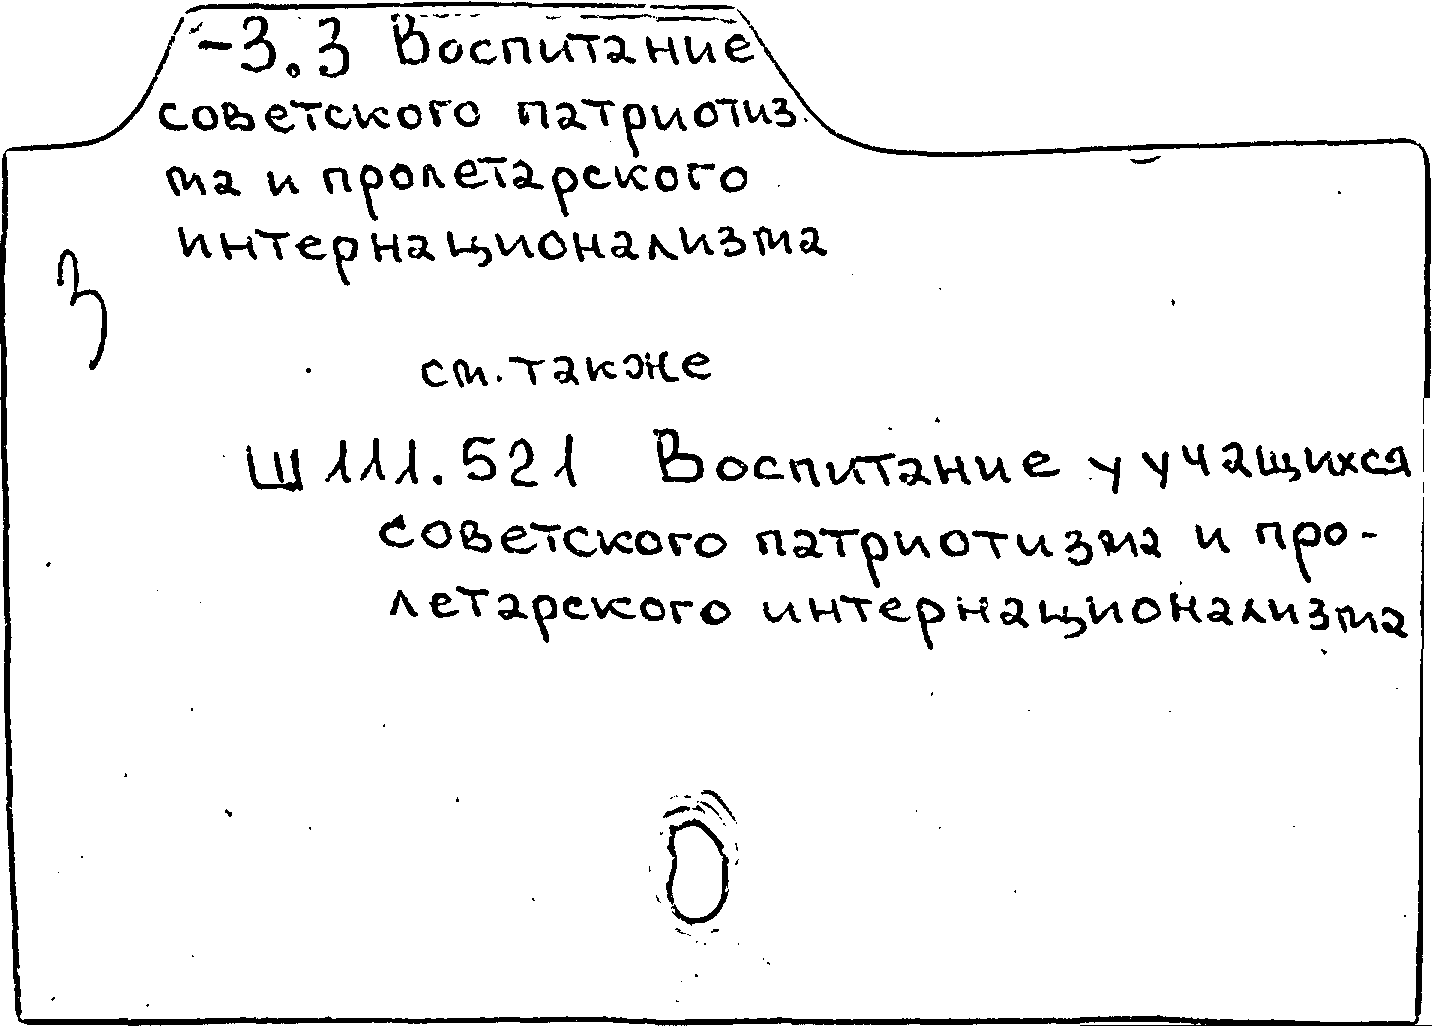 -3.3 Воспитание
советского патриотиз
ма и пролетарского
интернационализма
3
см. также
Ш111.521 Воспитание у учащихся
советского патриотизма и про-
летарского интернационализма